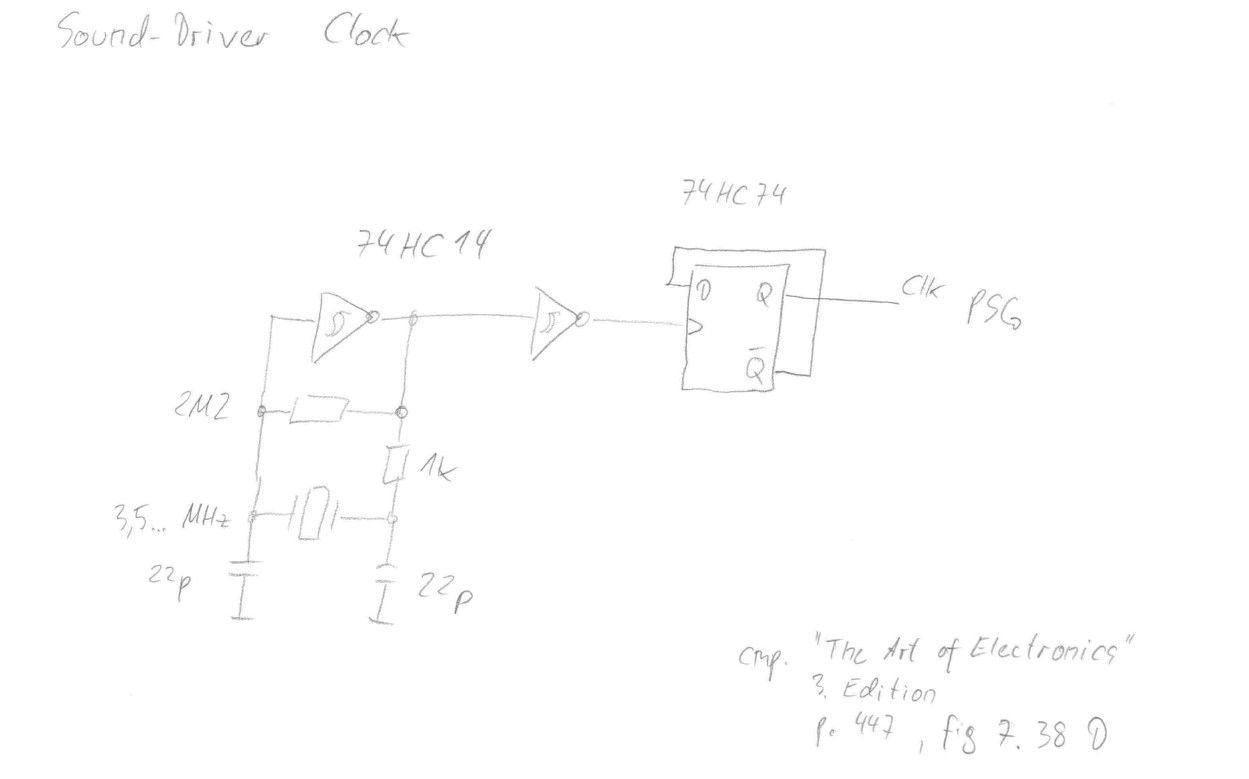 Sound-Driver Clock
74HC74
74HC14
D Q
Clk PSG
Q̅
2M2
1k
3,5... MHz
22p
22p
cmp. "The Art of Electronics"
3. Edition
p. 447, fig 7.38 D